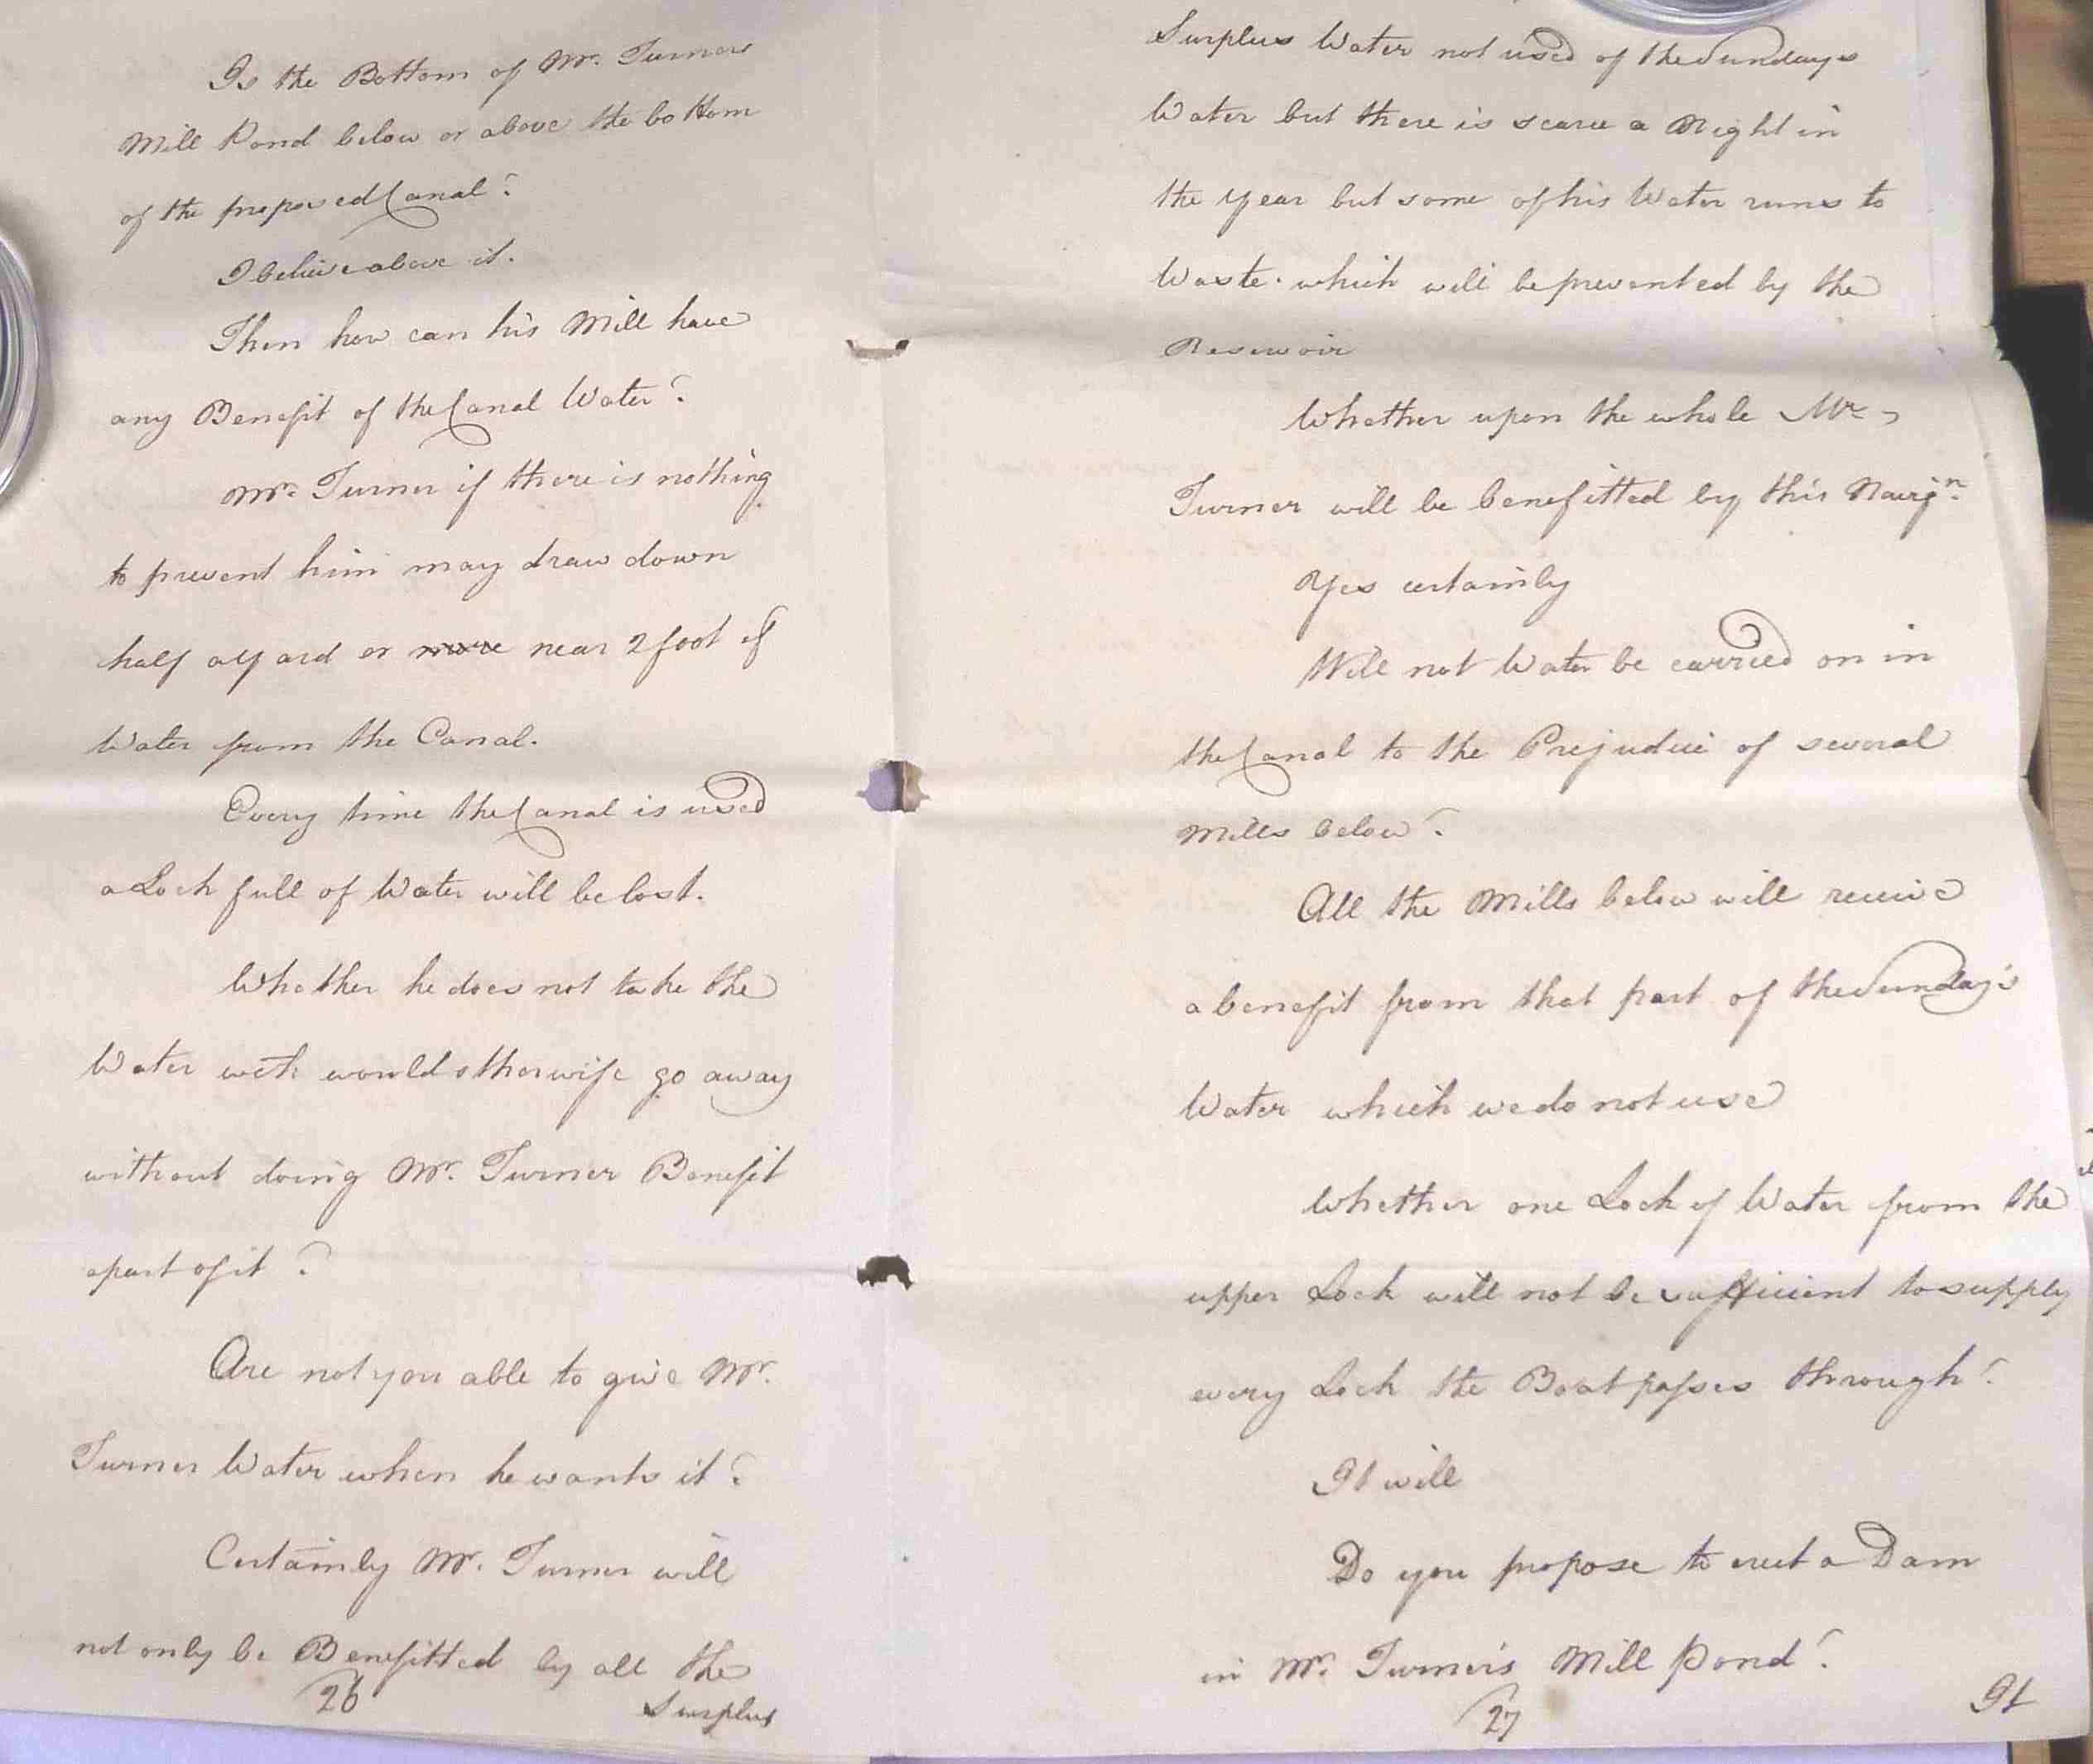 Is the Bottom of Mr. Turners
Mill Pond below or above the bottom
of the proposed Canal?
I believe above it.
Then how can his Mill have
any Benefit of the Canal Water?
Mr. Turner if there is nothing
to prevent him may draw down
half a Yard or more near 2 foot of
Water from the Canal.
Every time the Canal is used
a Lock full of Water will be lost.
Whether he does not take the
Water wch would otherwise go away
without doing Mr. Turner Benefit
apart of it?
Are not you able to give Mr.
Turner Water when he wants it?
Certainly Mr. Turner will
not only be Benefitted by all the
26
Surplus
Surplus Water not used of the Sundays
Water but there is scarce a Night in
the Year but some of his Water runs to
Waste. which will be prevented by the
Reservoir
Whether upon the whole Mr.
Turner will be benefitted by this Navign.
Yes certainly
Will not Water be carried on in
the Canal to the Prejudice of several
Mills below?
All the Mills below will receive
a benefit from that part of the Sunday's
Water which we do not use
Whether one Lock of Water from the
upper Lock will not be sufficient to supply
every Lock the Boat passes through?
It will
Do you propose to erect a Dam
in Mr. Turner's Mill Pond?
27
It